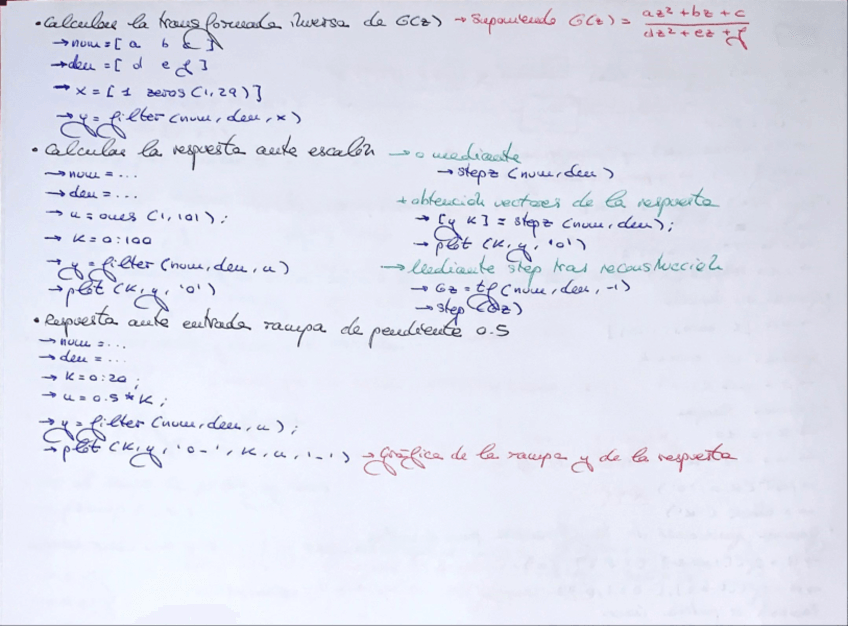 • Calcular la transformada inversa de G(z) → Suponiendo G(z) = az² + bz + c / dz² + ez + f
→ num = [ a b c ]
→ den = [ d e f ]
→ x = [ 1 zeros(1,29) ]
→ y = filter(num, den, x)
• Calcular la respuesta ante escalón → o mediante
→ stepz (num, den)
→ num = ...
→ den = ...
→ u = ones (1,101) ;
→ K = 0:100
→ y = filter (num, den, u)
→ plot (K, y, 'o')
+ obtención vectores de la respuesta
→ [y K] = stepz (num, den);
→ plot (K, y, 'o')
→ Mediante step tras reconstrucción
→ Gz = tf (num, den, -1)
→ step (Gz)
• Repuesta ante entrada rampa de pendiente 0.5
→ num = ...
→ den = ...
→ K = 0:20 ;
→ u = 0.5 * K ;
→ y = filter (num, den, u) ;
→ plot (K, y, 'o-', K, u, '-') → gráfica de la rampa y de la respuesta